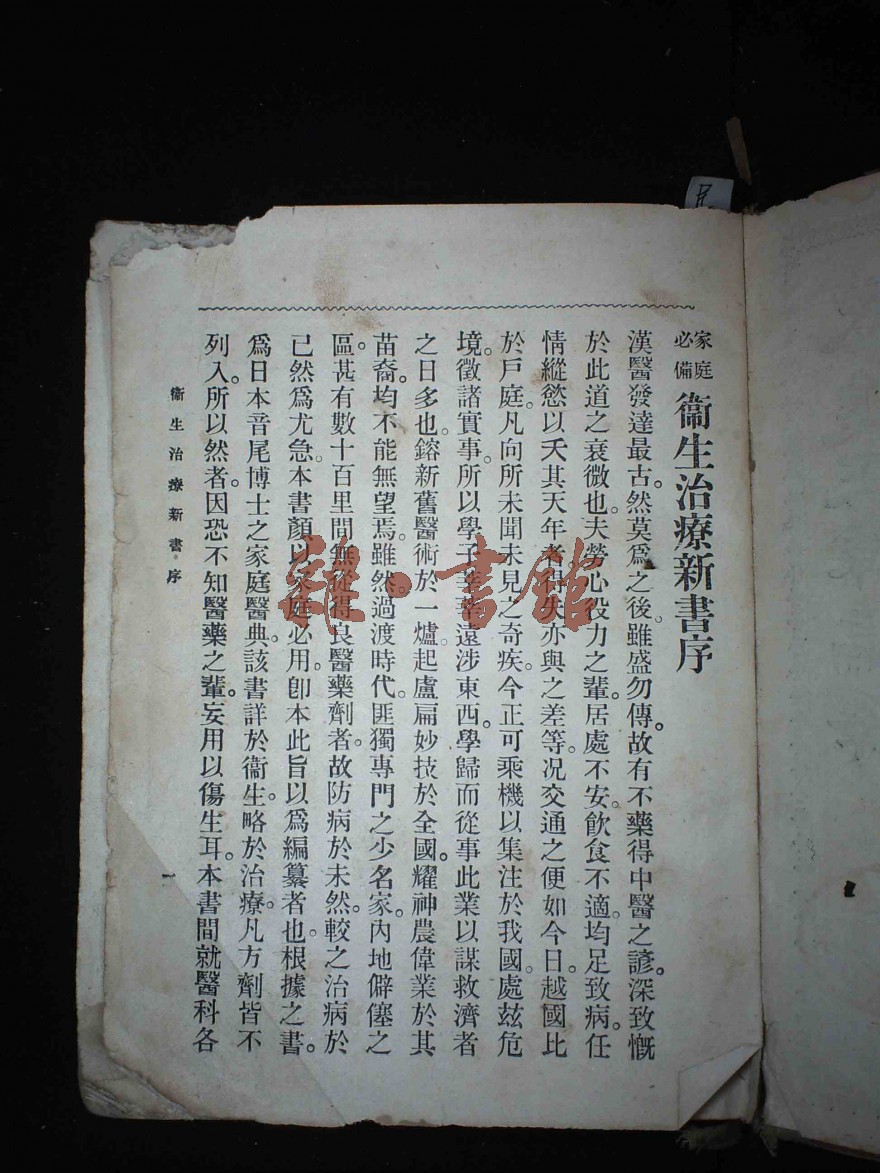 家庭
必備
衞生治療新書序
漢醫發達最古。然莫爲之後。雖盛勿傳。故有不藥得中醫之諺。深致慨
於此道之衰微也。夫勞心役力之輩。居處不安。飲食不適。均足致病。任
情縱慾以夭其天年者得失亦與之差等。况交通之便如今日。越國比
於戸庭。凡向所未聞未見之奇疾。今正可乘機以集注於我國。處玆危
境。徵諸實事。所以學子莘莘遠涉東西。學歸而從事此業以謀救濟者
之日多也。鎔新舊醫術於一爐。起盧扁妙技於全國。耀神農偉業於其
苗裔。均不能無望焉。雖然。過渡時代。匪獨專門之少名家。內地僻僿之
區。甚有數十百里間無從得良醫藥劑者。故防病於未然。較之治病於
已然爲尤急。本書顏以家庭必用。卽本此旨以爲編纂者也。根據之書。
爲日本音尾博士之家庭醫典。該書詳於衞生。略於治療。凡方劑皆不
列入。所以然者。因恐不知醫藥之輩。妄用以傷生耳。本書間就醫科各
衞生治療新書 序
雜·書館